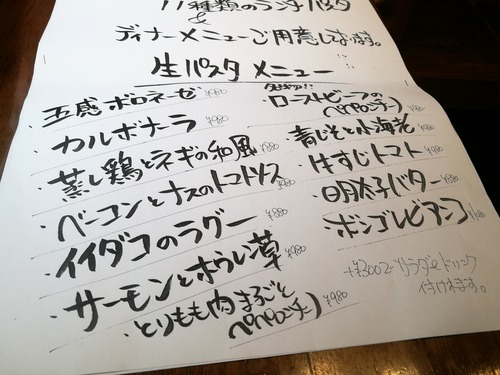 11種類のランチパスタ
&
ディナーメニューご用意しております。
生パスタ メニュー
・五感ボロネーゼ ¥980
・カルボナーラ ¥980
・蒸し鶏とネギの和風
・ベーコンとナスのトマトソース
・イイダコのラグー ¥980
・サーモンとほうれん草 ¥980
・とりもも肉まるごと
ペペロンチーノ ¥980
・ローストビーフの
(ペペロンチーノ)
・青じそと小海老
・はすじトマト ¥980
・明太子バター
・ボンゴレビアンコ
+¥300で サラダ&ドリンク
付けれます。